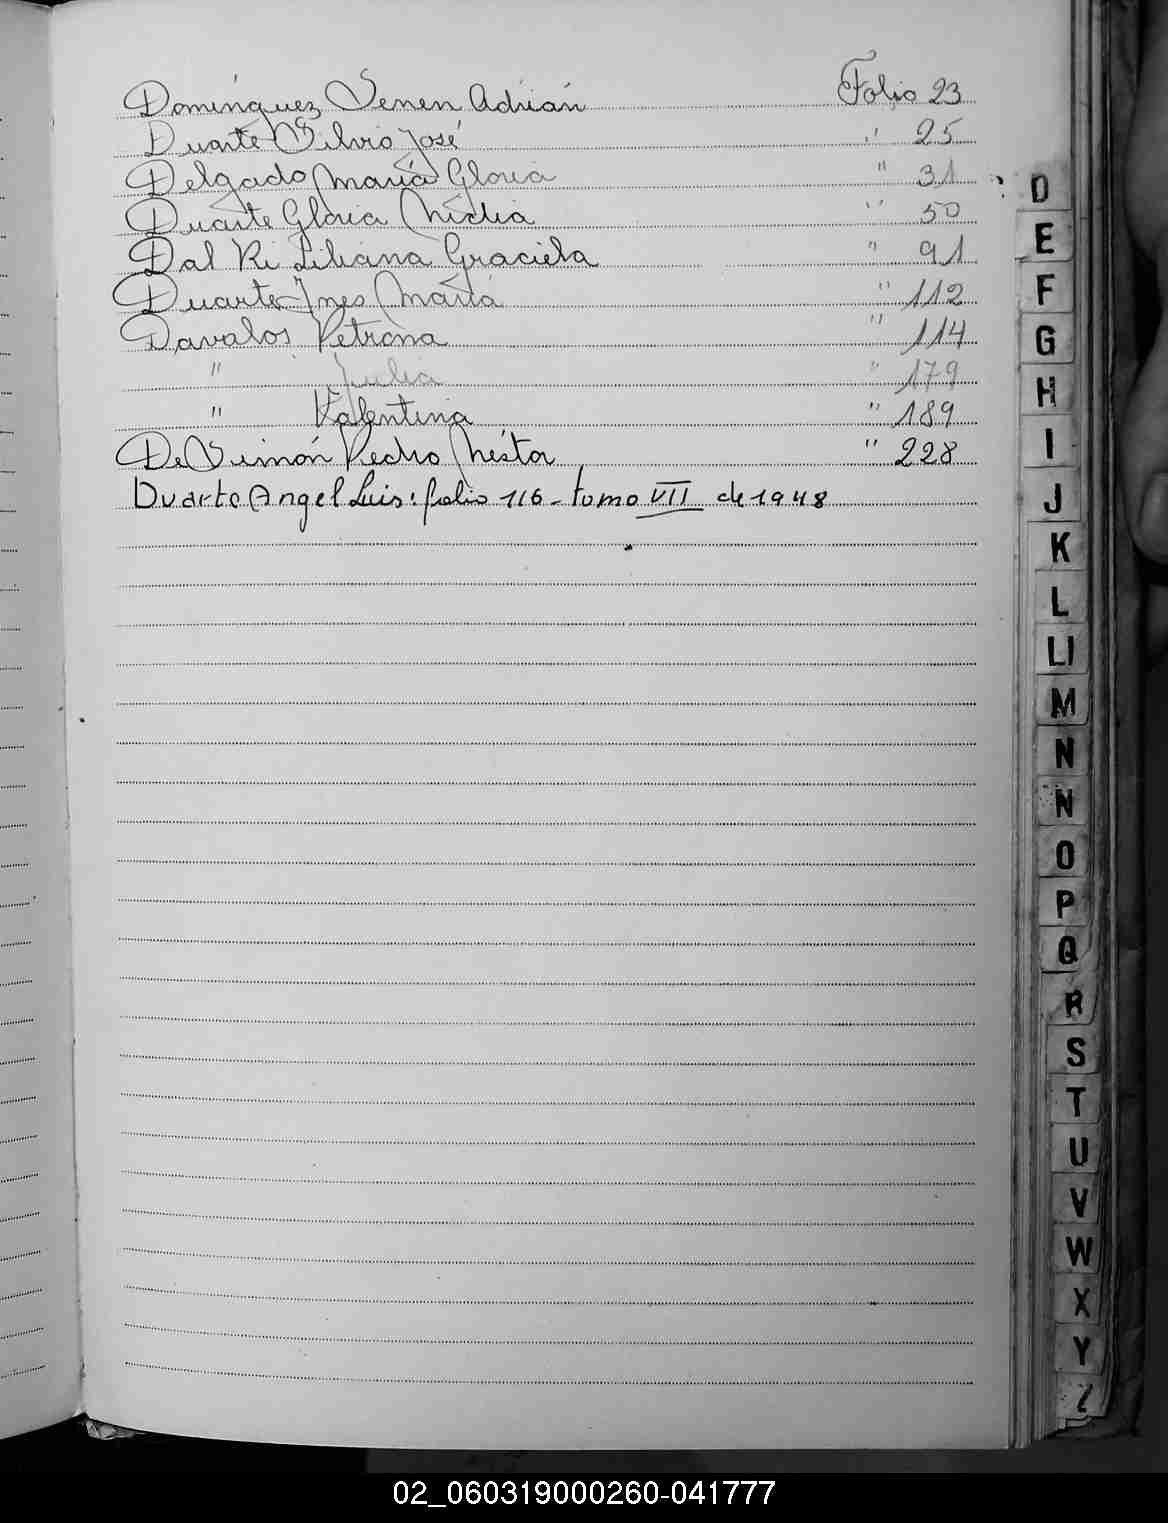 Domínguez Senen Adrián Folio 23
Duarte Silvio José " 25
Delgado María Gloria " 31
Duarte Gloria Nidia " 50
Dal Ri Liliana Graciela " 91
Duarte Ines María " 112
Davalos Petrona " 114
" Julia " 179
" Valentina " 189
De Simón Pedro Néstor " 228
Duarte Angel Luis: folio 116 - tomo VII de 1948
D
E
F
G
H
I
J
K
L
Ll
M
N
N
O
P
Q
R
S
T
U
V
W
X
Y
Z
02_060319000260-041777